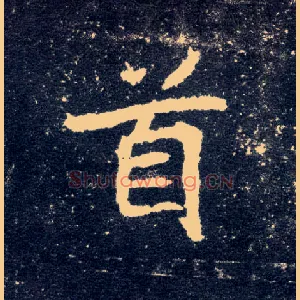 首
Shufawang.CN